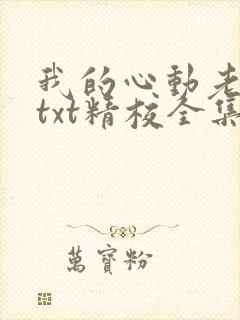 我的心動老
txt精校全集
萬寶粉